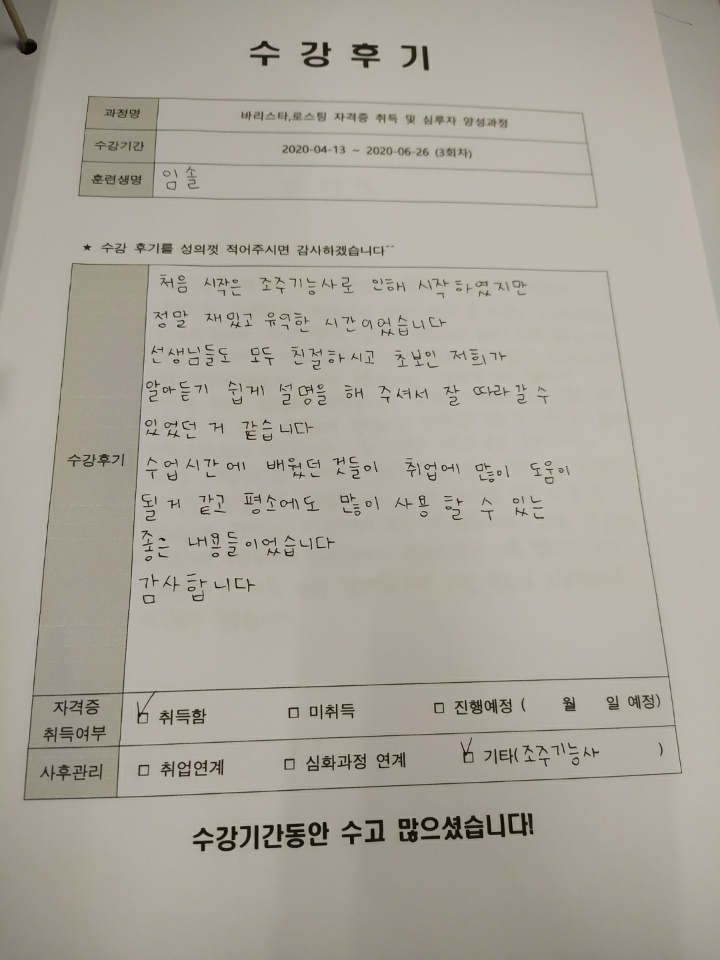 수강후기
과정명 바리스타,로스팅 자격증 취득 및 실무자 양성과정
수강기간 2020-04-13 ~ 2020-06-26 (3회차)
훈련생명 임솔
★ 수강 후기를 성의껏 적어주시면 감사하겠습니다^^
수강후기
처음 시작은 조주기능사로 인해 시작하였지만
정말 재밌고 유익한 시간이었습니다
선생님들도 모두 친절하시고 초보인 저희가
알아듣기 쉽게 설명을 해 주셔서 잘 따라갈 수
있었던 거 같습니다
수업시간에 배웠던 것들이 취업에 많이 도움이
될거 같고 평소에도 많이 사용 할 수 있는
좋은 내용들이었습니다
감사합니다
자격증 취득여부 ☑ 취득함 □ 미취득 □ 진행예정 ( 월 일 예정)
사후관리 □ 취업연계 □ 심화과정 연계 ☑ 기타(조주기능사 )
수강기간동안 수고 많으셨습니다!